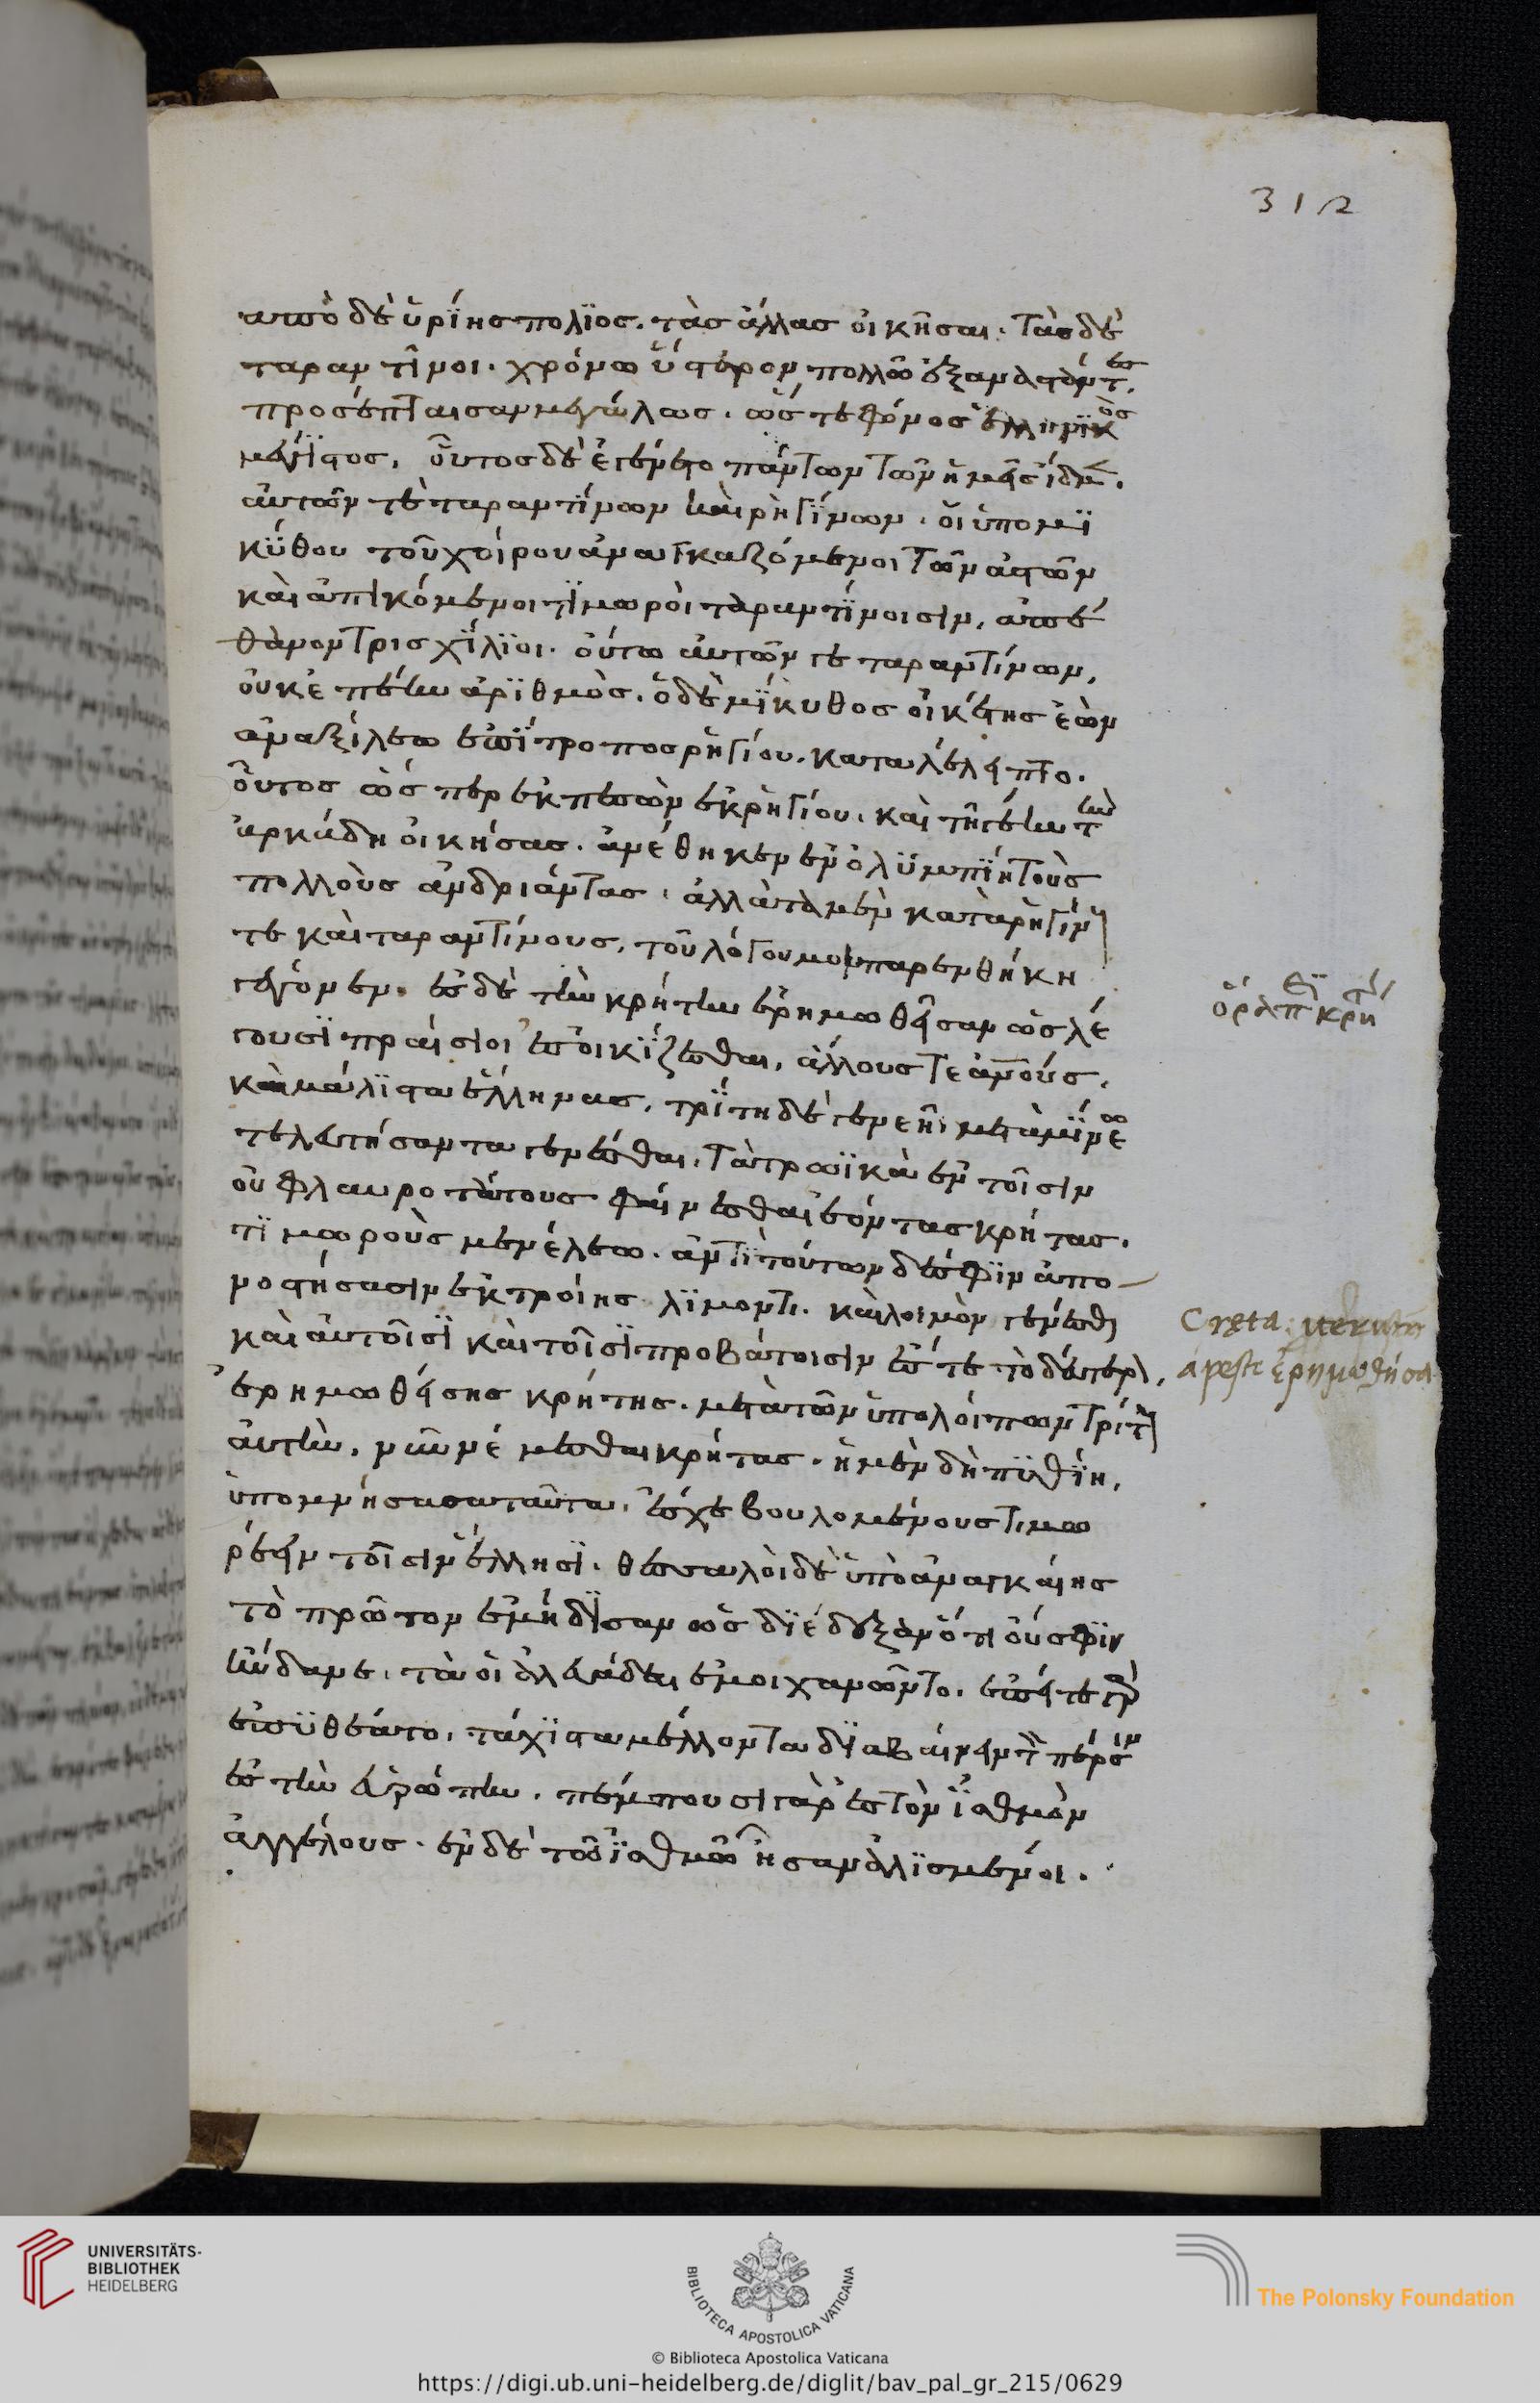 312
ἀπὸ δὲ ὑρίης πολϊος. τὰς ἄλλας οἰκῆσαι. τὰς δὲ
ταραντῖνοι. χρόνω ὕστερον πολλῶ ἐξανασταντες,
προσέπταισαν μεγάλως. ὥστε φόνος ἑλληνικὸς
μέγϊστος, οὗτος δὲ ἐγένετο πάντων τῶν ἡμεῖς ἴδμεν.
αὐτῶν τὲ ταραντίνων καὶ ρηγΐνων. οἱ ὑπο μϊ
κΰθου τοῦ χοίρου ἀναγκαζόμενοι τῶν ἀστῶν
καὶ ἀπικόμενοι τϊμωροὶ ταραντΐνοισιν, ἀπέ
θανον τρισχΐλϊοι. οὕτω αὐτῶν τε ταραντίνων,
οὐκ ἐπέην ἀρϊθμὸς. ὁ δὲ μΐκυθος οἰκέτης ἐὼν
ἀναξίλεω ἐπΐτροπος ρηγίου. καταλέλειπτο.
οὗτος ὥσπερ ἐκπεσὼν ἐκ ρηγίου. καὶ τεγέην τὴν
ἀρκάδη οἰκήσας. ἀνέθηκεν ἐν ὀλϋμπΐη τοὺς
πολλοὺς ἀνδριάντας. ἀλλὰ τὰ μὲν κατὰ ρηγίν
τε καὶ ταραντίνους, τοῦ λόγου μου παρενθήκη
γέγονεν. ἐς δὲ τὴν κρήτην ἐρημωθεῖσαν ὡς λέ
γουσϊ πραίσιοι ἐσοικΐζεσθαι, ἄλλους τε ἀνους,
καὶ μάλϊστα ἕλληνας, τρΐτη δὲ γενεῆ μετὰ μΐνω
τελευτήσαντα γενέσθαι. τὰ τρωϊκὰ ἐν τοῖσιν
οὐ φλαυροτάτους φαίνεσθαι ἐόντας κρήτας.
τϊμωροὺς μενέλεω. ἀντὶ τούτων δέ σφϊν ἀπο
νοστήσασιν ἐκ τροίης λϊμόν τε καὶ λοιμὸν γενέσθαι
καὶ αὐτοῖσϊ καὶ τοῖσϊ προβάτοισιν ἔς τε τὸ δεύτερον,
ἐρημωθείσης κρήτης. μετὰ τῶν ὑπολοίπων τρίτον
αὐτὴν, νῦν νέμεσθαι κρήτας. ἡ μὲν δὴ πϋθΐη,
ὑπομνήσασα ταῦτα, ἔσχε βουλομένους τιμω
ρέειν τοῖσιν ἕλλησϊ. θεσσαλοὶ δὲ ὑπὸ ἀναγκαίης
τὸ πρῶτον ἐμήδϊσαν ὡς δϊέδεξαν ὅτι οὔ σφϊν
ἥνδανε. τὰ οἱ ἀλευάδαι ἐμοιχανῶντο. ἐπεί τε γὰρ
ἐπϋθέατο, τάχϊστα μέλλοντα δϊαβαίνειν τὸν πέρσην
ἐς τὴν εὐρώπην. πέμπουσι γὰρ ἐς τὸν ἰσθμὸν
ἀγγέλους. ἐν δὲ τῶ ἰσθμῶ ἦσαν ἁλϊσμένοι.
Creta iterum
a peste ἐρημωθεῖσα
UNIVERSITÄTS-
BIBLIOTHEK
HEIDELBERG
BIBLIOTECA APOSTOLICA VATICANA
The Polonsky Foundation
© Biblioteca Apostolica Vaticana
https://digi.ub.uni-heidelberg.de/diglit/bav_pal_gr_215/0629